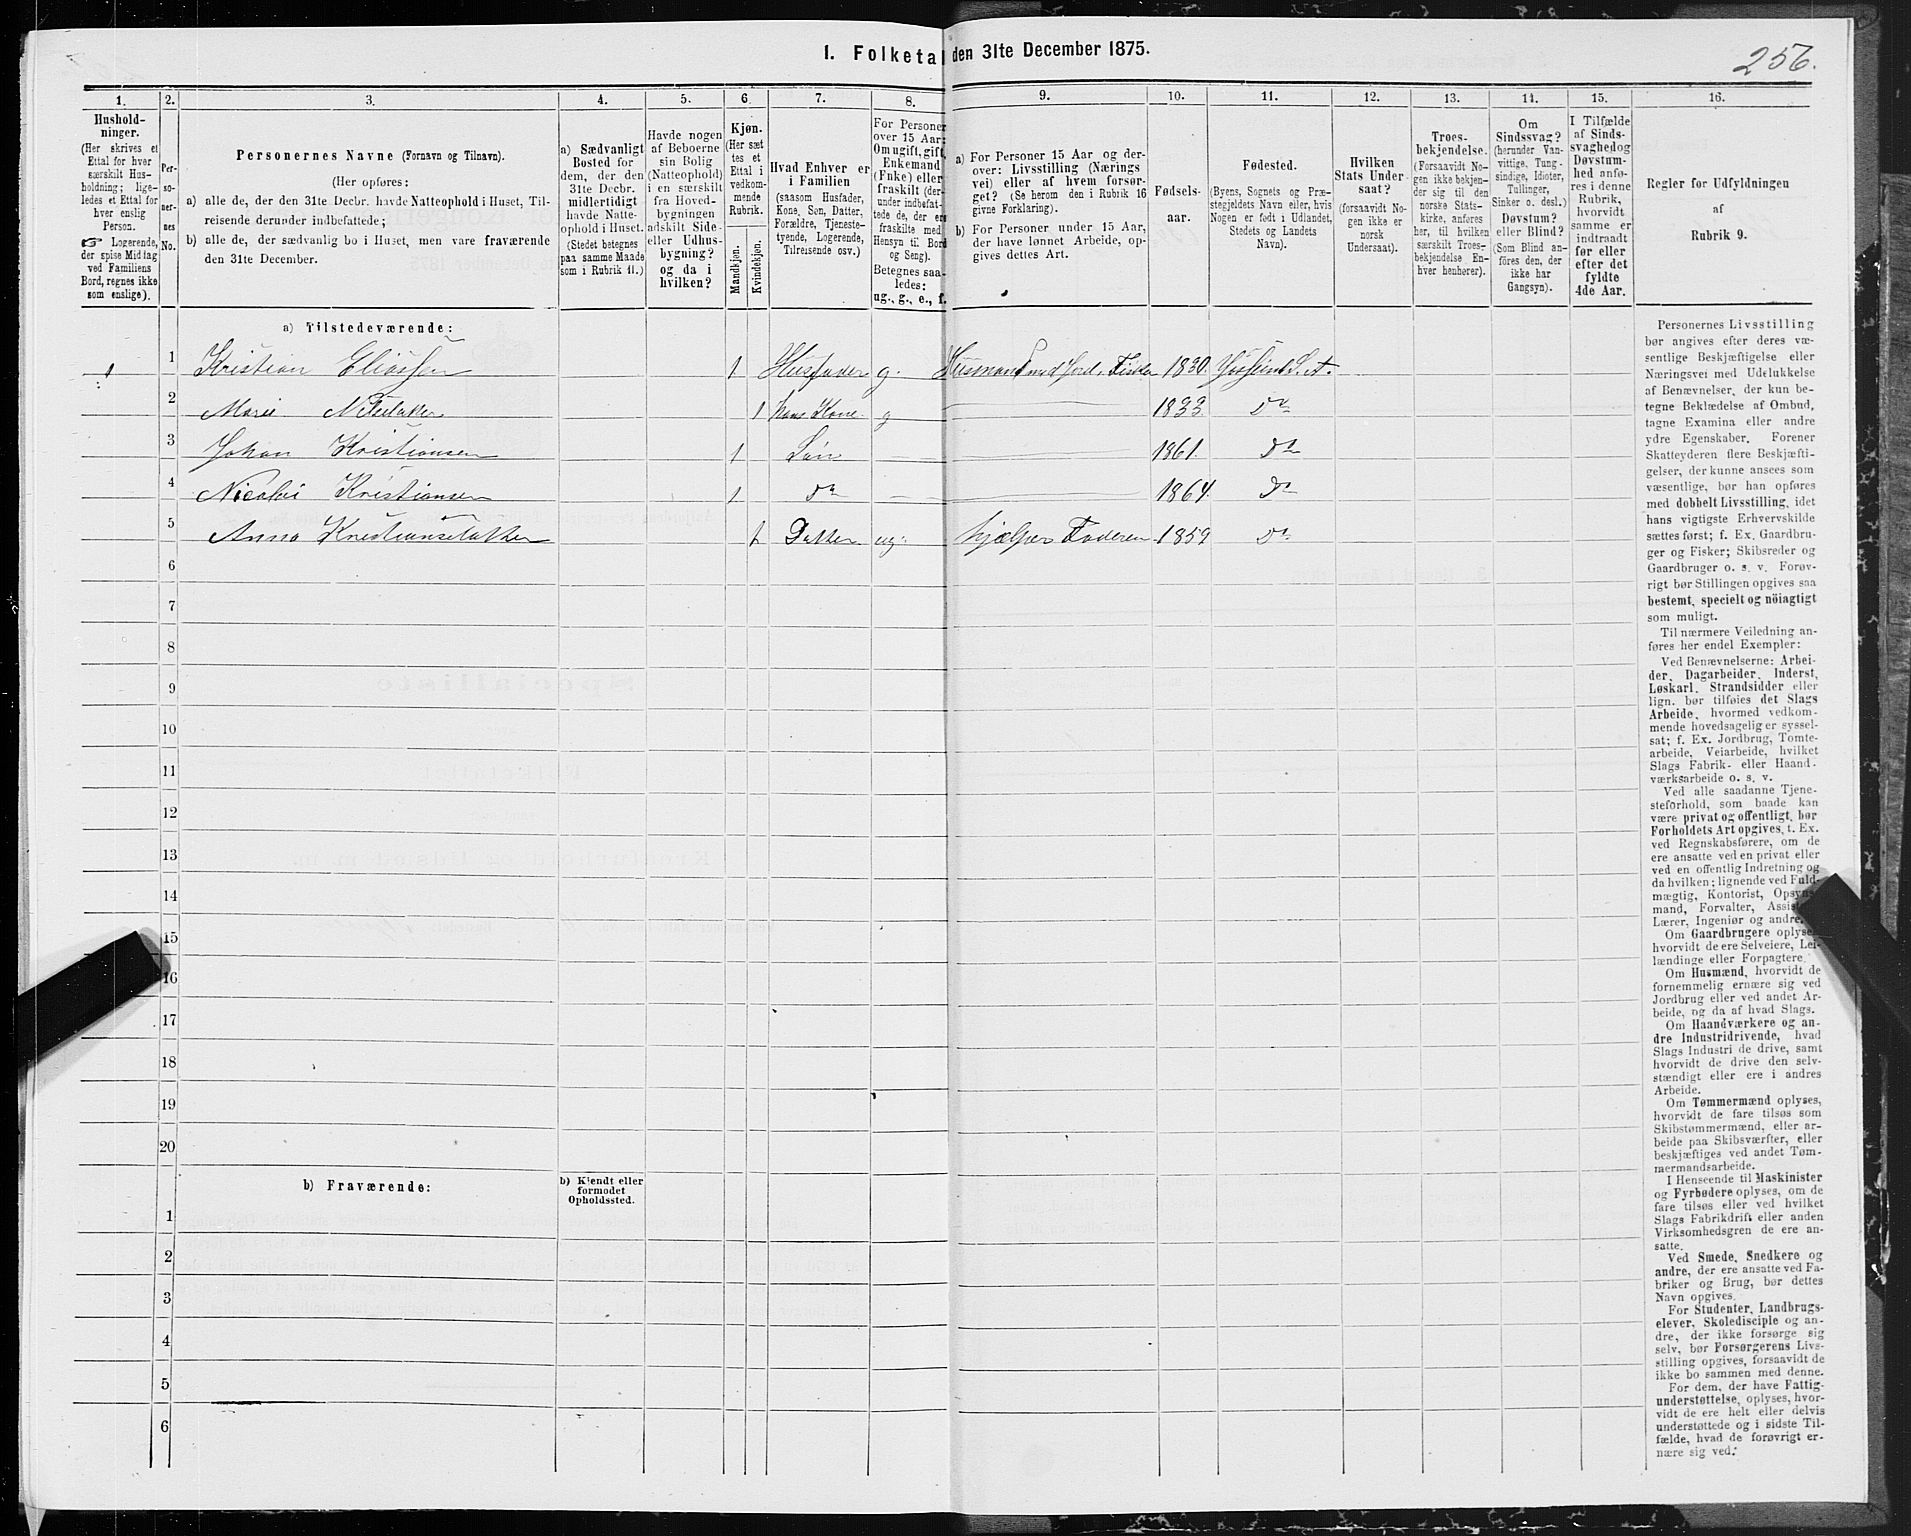 I. Folketal den 31te December 1875.
256.
1. 2. 3. 4. 5. 6. 7. 8. 9. 10. 11. 12. 13. 14. 15. 16.
Hushold-
ninger.
(Her skrives et
Ettal for hver
særskilt Hus-
holdning; lige-
ledes et Ettal for
hver enslig
Person.
☞ Logerende,
der spise Middag
ved Familiens
Bord, regnes ikke
som enslige).
Per-
so-
ner-
nes
No.
Personernes Navne (Fornavn og Tilnavn).
(Her opføres:
a) alle de, der den 31te Decbr. havde Natteophold i Huset, Til-
reisende derunder indbefattede;
b) alle de, der sædvanlig bo i Huset, men vare fraværende
den 31te December.
a) Sædvanligt
Bosted for
dem, der den
31te Decbr.
midlertidigt
havde Natte-
ophold i Huset.
(Stedet betegnes
paa samme Maade
som i Rubrik 11.)
Havde nogen
af Beboerne
sin Bolig
(Natteophold)
i en særskilt
fra Hoved-
bygningen
adskilt Side-
eller Udhus-
bygning?
og da i
hvilken?
Kjøn.
(Her sæt
tes et
Ettal i
vedkom-
mende
Rubrik.
Mandkjøn.
Kvindekjøn.
Hvad Enhver er
i Familien
(saasom Husfader,
Kone, Søn, Datter,
Forældre, Tjeneste-
tyende, Logerende,
Tilreisende osv.)
For Personer
over 15 Aar:
Om ugift, gift,
Enkemand
(Enke) eller
fraskilt (der-
under indbefat-
tede de, der ere
fraskilte med
Hensyn til Bord
og Seng).
Betegnes saa-
ledes:
ug., g., e., f.
a) For Personer 15 Aar og der-
over: Livsstilling (Nærings
vei) eller af hvem forsør-
get? (Se herom den i Rubrik 16
givne Forklaring).
b) For Personer under 15 Aar,
der have lønnet Arbeide, op-
gives dettes Art.
Fødsels-
aar.
Fødested.
(Byens, Sognets og Præ-
stegjeldets Navn eller, hvis
Nogen er født i Udlandet,
Stedets og Landets
Navn).
Hvilken
Stats Under
saat?
(forsaavidt No-
gen ikke er
norsk
Undersaat).
Troes-
bekjendelse.
(Forsaavidt No-
gen ikke bekjen-
der sig til den
norske Stats-
kirke, anføres
her, til hvilken
særskilt Troes-
bekjendelse En-
hver henhører).
Om
Sindssvag?
(herunder Van-
vittige, Tung-
sindige, Idioter,
Tullinger,
Sinker o. desl.)
Døvstum?
eller Blind?
(Som Blind an-
føres den, der
ikke har
Gangsyn).
I Tilfælde
af Sinds-
svaghedog
Døvstum-
hed anfø-
res i denne
Rubrik,
hvorvidt
samme er
indtraadt
før eller
efter det
fyldte
4de Aar.
Regler for Udfyldningen
af
Rubrik 9.
a) Tilstedeværende:
1 1 Kristian Eliassen 1 Husfader g. Husmand med Jord, Fisker 1830.
2 Marie 1 hans Kone g 1833. Do
3 Johan Kristiansen 1 Søn 1861. Do
4 Nicolai Kristiansen 1 Do 1864. Do
5 Anna Kristiansdatter 1 Datter ug. hjælper Faderen 1859 Do
6
7
8
9
10
11
12
13
14
15
16
17
18
19
20
b) Fraværende:
b) Kjendt eller
formodet
Opholdssted.
1
2
3
4
5
6
Personernes Livsstilling
bør angives efter deres væ-
sentlige Beskjæftigelse eller
Næringsvei med Udelukkelse
af Benævnelser, der kun be-
tegne Beklædelse af Ombud,
tagne Examina eller andre
ydre Egenskaber. Forener
Skatteyderen flere Beskjæfti-
gelser, der kunne ansees som
væsentlige, bør han opføres
med dobbelt Livsstilling, idet
hans vigtigste Erhvervskilde
sættes først; f. Ex. Gaardbru-
ger og Fisker; Skibsreder og
Gaardbruger o. s. v. Forøv-
rigt bør Stillingen opgives saa
bestemt, specielt og nöiagtigt
som muligt.
Til nærmere Veiledning an-
føres her endel Exempler:
Ved Benævnelserne: Arbei-
der, Dagarbeider, Inderst,
Løskarl, Strandsidder eller
lign. bør tilføies det Slags
Arbeide, hvormed vedkom-
mende hovedsagelig er syssel-
sat; f. Ex. Jordbrug, Tomte-
arbeide, Veiarbeide, hvilket
Slags Fabrik- eller Haand-
værksarbeide o. s. v.
Ved alle saadanne Tjene-
steforhold, som baade kan
være privat og offentligt, bør
Forholdets Art opgives, t. Ex.
ved Regnskabsførere, om de
ere ansatte ved en privat eller
ved en offentlig Indretning og
da hvilken; lignende ved Fuld-
mægtig, Kontorist, Opsyns-
mand, Forvalter, Assistent,
Lærer, Ingeniør og andre.
Om Gaardbrugere oplyses,
hvorvidt de ere Selveiere, Lei-
lændinge eller Forpagtere.
Om Husmænd, hvorvidt de
fornemmelig ernære sig ved
Jordbrug eller ved andet Ar-
beide, og da af hvad Slags.
Om Haandværkere og an-
dre Industridrivende, hvad
Slags Industri de drive, samt
hvorvidt de drive den selv-
stændigt eller ere i andres
Arbeide.
Om Tømmermænd oplyses,
hvorvidt de fare tilsøs som
Skibstømmermænd, eller ar-
beide paa Skibsværfter, eller
beskjæftiges ved andet Tøm-
mermandsarbeide.
I Henseende til Maskinister
og Fyrbødere oplyses, om de
fare tilsøs eller ved hvilket
Slags Fabrikdrift eller anden
Virksomhedsgren de ere an-
satte.
Ved Smede, Snedkere og
andre, der ere ansatte ved Fa-
briker og Brug, bør dettes
Navn opgives.
For Studenter, Landbrugs-
elever, Skoledisciple og an-
dre, der ikke forsørge sig
selv, bør Forsørgerens Livs-
stilling opgives, forsaavidt de
ikke bo sammen med denne.
For dem, der have Fattig-
understøttelse, oplyses, hvor-
vidt de ere helt eller delvis
understøttede og i sidste Til-
fælde, hvad de forøvrigt er-
nære sig ved.